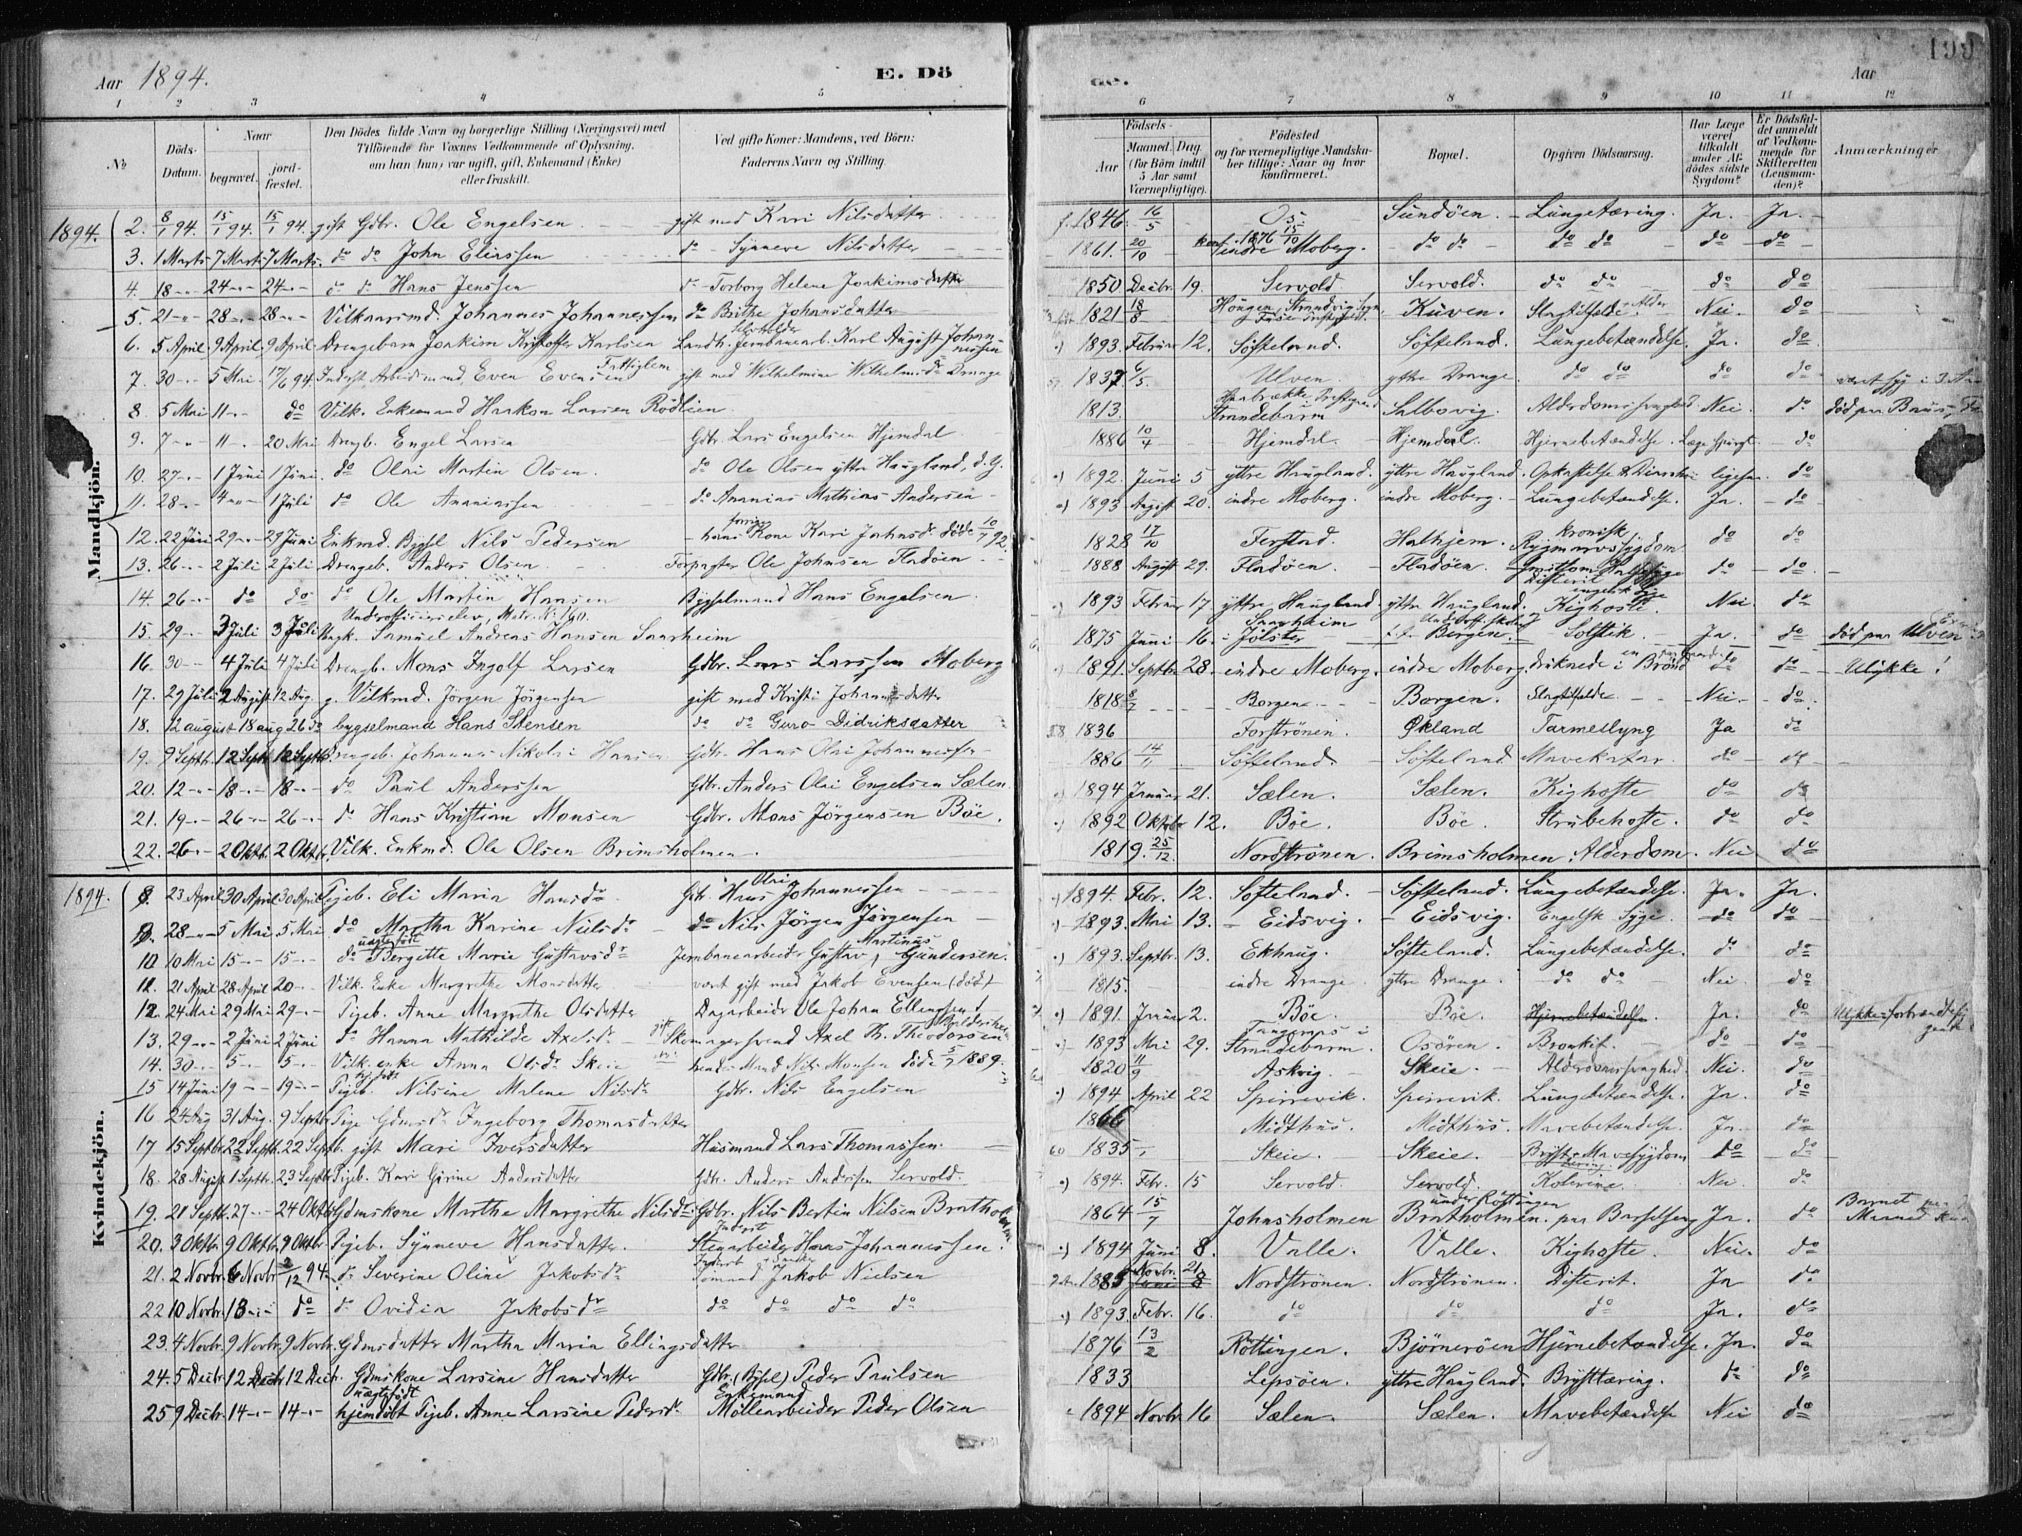 Aar 1894. E. Dö
de. Aar 199
1 2 3 4 5 6 7 8 9 10 11 12
No Döds-Datum. Naar begravet. jord-fæstet. Den Dödes fulde Navn og borgerlige Stilling (Næringsvei) med Tilföiende for Voxnes Vedkommende af Oplysning, om han (hun) var ugift, gift, Enkemand (Enke) eller fraskilt. Ved gifte Koner: Mandens, ved Börn: Faderens Navn og Stilling. Födsels- Aar Maaned. Dag. (for Börn indtil 5 Aar samt Værnepligtige). Födested og for værnepligtige Mandskaber tillige: Naar og hvor konfirmeret. Bopæl. Opgiven Dödsaarsag. Har Læge været tilkaldt under Afdödes sidste Sygdom? Er Dödsfaldet anmeldt af Vedkommende for Skifteretten (Lensmanden)? Anmærkninger
Mandkjön.
1894. 2. 8/1 94. 15/1 94. 15/1 94. gift Gdbr. Ole Engelsen gift med Kari Nilsdatter 1846 16/5 Os Sundöen. Lungetæring. Ja. Ja.
3. 1 Marts 7 Marts 7 Marts. do do John Eliassen do Synneve Nilsdatter 1861. 20/10 konf. 1876 15/10 indre Moberg. do do do do do do
4. 18 24 24 do do Hans Jenssen do Torborg Helene Joakimsdatter 1850 Decbr. 19. Servold Servold. do do do do
5. 21 28 28 Vilkaarsmd. Johannes Johannessen do Brithe Johansdatter 1821 18/8 Hougen, Strandvig Kuven. Slagtilfælde. Alder Nei. do
6. 5 April 9 April 9 April Drengebarn Joakim Kristoffer Karlsen Landh. Jernbanearb. Karl August Johannessen 1893. Februar 12. Söfteland. Söfteland. Lungebetændelse. Ja. do
7. 30 5 Mai 17/6 94 Inderst Arbeidsmand Even Evensen Fattiglem gift med Wilhelmine Wilhelmsdr Drange 1837 6/5. Ulven ytre Drange. do do do do været syg i 3 Aar
8. 5 Mai 11 do Vilk. Enkemand Haakon Larsen Rödlien 1813. Strandebarm Salbovig. Alderdomssvaghed Nei. do död paa Baus
9. 7 11 20 Mai Drengb. Engel Larsen Gdbr. Lars Engelsen Hjemdal 1886 10/4 Hjemdal. Hjemdal. Hjernebetændelse. Læge spurgt. do
10. 27 1 Juni 1 Juni. do Olai Martin Olsen. do Ole Olsen ytre Haugland, d.y. 1892. Juni 5 ytre Haugland. ytre Haugland. Opkastelse & Diarrhoe ligesaa do
11. 28 4 1 Juli do Ole Ananiassen do Ananias Mathias Andersen 1893 August 20. indre Moberg. indre Moberg. Lungebetændelse. Ja. do
12. 22 Juni 29 29 Juni Enkmd. Bygsl Nils Pedersen hans forrige Kone Kari Johnsdr. döde 10/7 92. 1828 17/10 Ferstad. Hathjem. kronisk Rygmarvssygdom do do
13. 26 2 Juli 2 Juli Drengeb. Anders Olsen Forpagter Ole Johnsen Fladöen 1888 August 29. Fladöen. Fladöen. Difterit do do
14. 26 do do do Ole Martin Hansen Bygselmand Hans Engelsen. 1893 Februar 17 ytre Haugland ytre Haugland. Kighoste. Nei. do
15. 29 3 Juli 3 Juli Underofficerselev, Matr. N. 160. Ungk. Samuel Andreas Hansen Saarheim 1875 Juni 16. Saarheim i Jölster Bergen. Solstik. Ja. do död paa Ulven
16. 30 4 Juli 4 Juli Drengb. Mons Ingolf Larsen Gdbr. Lars Larssen Moberg 1891 Septbr. 28. indre Moberg. indre Moberg. druknede i en Brönd do do Ulykke!
17. 29 Juli 2 August 12 Aug. g. Vilkmd. Jörgen Jörgensen gift med Kristi Johannesdatter 1818 8/7 Borgen. Borgen. Slagtilfælde Nei. do
18. 12 august 18 aug 26 do bygselmand Hans Stensen do do Guro Didriksdatter 1836 Forströnen. Økland Tarmeslyng Ja do
19. 9 Septb. 12 Septb. 12 Septb. Drengeb. Johannes Nikolai Hansen Gdbr. Hans Olai Johannessen 1886 14/11 Söfteland. Söfteland Mavekatar. do do
20. 12 18 18 do Paul Anderssen Gdbr. Anders Olai Engelsen Sælen. 1894 Januar 21. Sælen. Sælen. Kighoste do do
21. 19 26 26 do Hans Kristian Monsen Gdbr. Mons Jörgensen Böe. 1892 Oktobr 12. Böe. Böe. Strubehoste. do do
22. 26 2 Oktb. 2 Oktb. Vilk. Enkmd. Ole Olsen Brimsholmen. 1819. 25/12. Nordströnen. Brimsholmen. Alderdom. Nei do
Kvindekjön.
1894. 8. 23 April 30 April 30 April Pigeb. Eli Maria Hansdr. Gdbr. Hans Olai Johannessen 1894. Febr. 12. Söfteland. Söfteland. Lungebetændelse. Ja. Ja.
9. 28 5 Mai 5 Mai do Martha Karine Nielsdr do Nils Jörgen Jörgensen 1893. Mai 13. Eidsvig. Eidsvig. Engelsk Syge. do do
10 10 Mai 15 15 uægtefödt do Bergitte Marie Gustavsdr Jernbanearbeider Gustav Martinus Gundersen. 1893. Septbr. 13. Ekhaug. Söfteland. Lungebetændelse. do do
11. 21 April 28 April 20 Vilk. Enke Margrethe Monsdatter været gift med Jakob Evensen (död) 1815. indre Drange ytre Drange. do do Nei do
12. 24 Mai 29 Mai 29 Pigeb. Anne Margrethe Olesdatter Dagarbeider Ole Johan Ellingsen 1891 Januar 2. Böe. Böe. Hjernebetændelse. Ja. do Ulykke: forbrændte sig
13. 29 2 Juni 2 Juni do Hanna Mathilde Axelsdr. Skomagersvend Axel Th. Theodorsen 1893 Mai 29. Tangeraas i Strandebarm. Osören. Bronkit. do do
14. 30 5 5 Vilk. enke Anna Olsdr Skeie hendes Mand Nils Monsen döde 5/7 1889. 1820 11/9 Askvig. Skeie. Alderdomssvaghed. Nei. do
15 14 Juni 19 19 Pigeb. Nilsine Malene Nilsdr Gdbr. Nils Engelsen 1894 April 22 Sperrevik. Sperrevik. Lungebetændelse. Ja. do
16 24 Aug 31 Aug. 9 Septbr. Pige Gdmsdr. Ingeborg Thomasdatter 1866 Midthus. Midthus. Mavebetændelse. Ja. do
17 15 Septbr. 22 Septb. 22 Septb. gift Mari Iversdatter Husmand Lars Thomassen. 1835 Skeie. Skeie. Bryst & Mavesygdom do do
18. 28 August 1 Septb. 23 Septbr. Pigeb. Kari Girine Andersdatter Gdbr. Anders Andersen Servold. 1894. Febr. 15 Servold. Servold. Kolerine. Nei do
19. 21 Septb. 27 24 Oktbr. Gdmskone Marthe Margrethe Nilsdr. Gdbr. Nils Bertin Nilsen Bratholmen 1864 15/7 Johnsholmen Bratholmen under Röttingen. paa Barselseng Ja. do Barnet
20. 3 Oktbr. 9 Oktbr. 9 Oktbr. Pigeb. Synneve Hansdatter. Inderst Stenarbeider Hans Johannessen. 1894 Juni 8. Valle. Valle. Kighoste. Nei. do
21. 2 Novbr. 6 Novbr. 2/12 94. do Severine Oline Jakobsdr Sömand Jakob Nielsen 1885 Novbr. 21 Juni 8 Nordströnen. Nordströnen. Difterit. Ja do
22 10 Novbr. 18 do do Ovidia Jakobsdr do do do do 1893. Febr. 16. do do do Ja. do
23. 4 Novbr. 9 Novbr. 9 Novbr. Gdmsdatter Martha Maria Ellingsdatter 1876 13/2 Röttingen. Bjørneröen Hjernebetændelse. Ja. do
24. 5 Decbr. 12 Decbr 12 Decbr. Gdmskone Larsine Hansdatter Gdbr. (Bysel) Peder Paulsen 1833 Lepsöen. ytre Haugland. Brysttæring. do do
25 9 Decbr. 14 14 uægtefödt hjemdöbt Pigeb. Anne Larsine Pedersdr. Enkemand Möllearbeider Peder Olsen 1894 Novbr. 16 Sælen. Sælen. Mavebetændelse Nei do